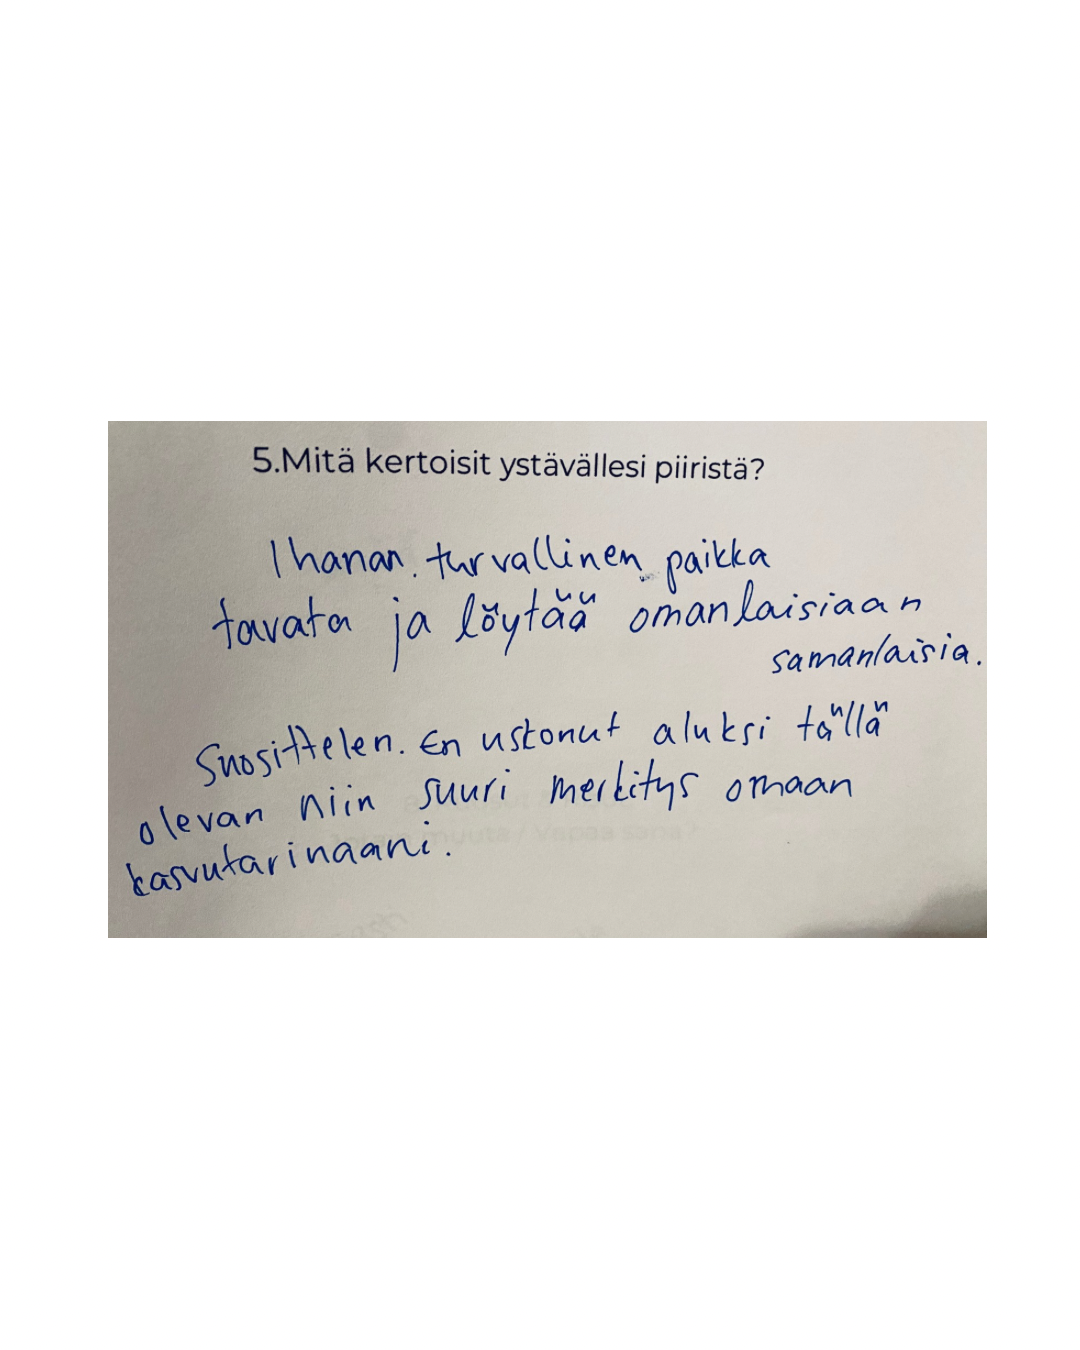 5.Mitä kertoisit ystävällesi piiristä?
Ihanan turvallinen paikka
tavata ja löytää omanlaisiaan
samanlaisia.
Suosittelen. En uskonut aluksi tällä
olevan niin suuri merkitys omaan
kasvutarinaani.
muuta / Vapaa sana